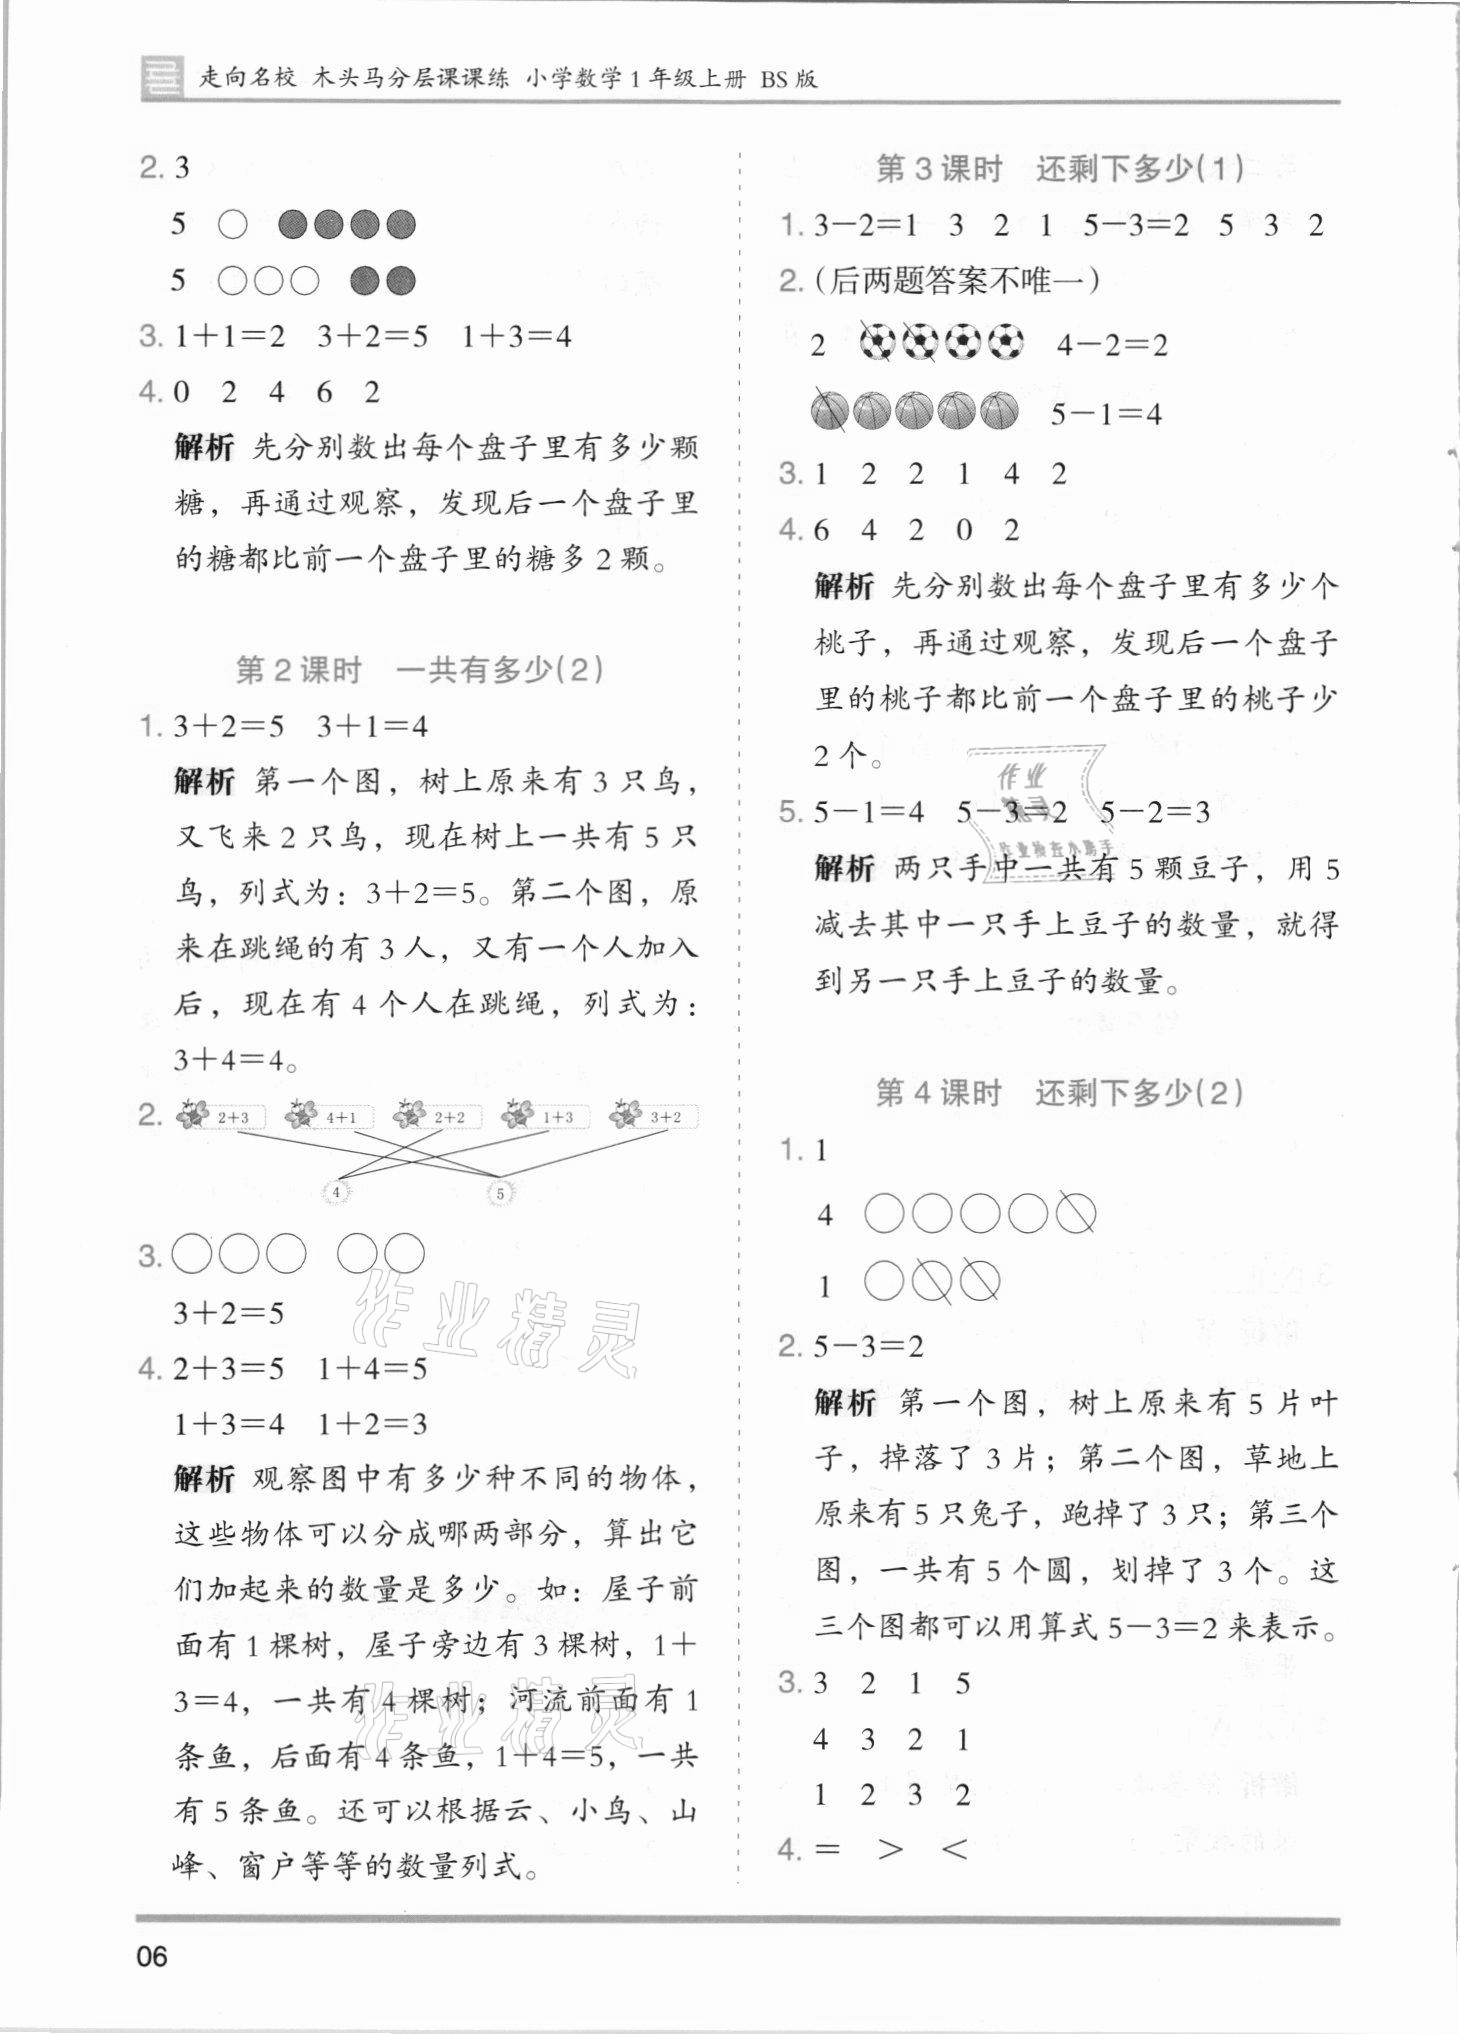 走向名校 木头马分层课课练 小学数学1年级上册 BS版
2. 3
5
5
3. 1+1=2 3+2=5 1+3=4
4. 0 2 4 6 2
解析 先分别数出每个盘子里有多少颗
糖，再通过观察，发现后一个盘子里
的糖都比前一个盘子里的糖多2颗。
第2课时 一共有多少(2)
1. 3+2=5 3+1=4
解析 第一个图，树上原来有3只鸟，
又飞来2只鸟，现在树上一共有5只
鸟，列式为：3+2=5。第二个图，原
来在跳绳的有3人，又有一个人加入
后，现在有4个人在跳绳，列式为：
3+4=4。
2. 2+3 4+1 2+2 1+3 3+2
4 5
3.
3+2=5
4. 2+3=5 1+4=5
1+3=4 1+2=3
解析 观察图中有多少种不同的物体，
这些物体可以分成哪两部分，算出它
们加起来的数量是多少。如：屋子前
面有1棵树，屋子旁边有3棵树，1+
3=4，一共有4棵树；河流前面有1
条鱼，后面有4条鱼，1+4=5，一共
有5条鱼。还可以根据云、小鸟、山
峰、窗户等等的数量列式。
第3课时 还剩下多少(1)
1. 3-2=1 3 2 1 5-3=2 5 3 2
2. (后两题答案不唯一)
2 4-2=2
5-1=4
3. 1 2 2 1 4 2
4. 6 4 2 0 2
解析 先分别数出每个盘子里有多少个
桃子，再通过观察，发现后一个盘子
里的桃子都比前一个盘子里的桃子少
2个。
5. 5-1=4 5-3=2 5-2=3
解析 两只手中一共有5颗豆子，用5
减去其中一只手上豆子的数量，就得
到另一只手上豆子的数量。
第4课时 还剩下多少(2)
1. 1
4
1
2. 5-3=2
解析 第一个图，树上原来有5片叶
子，掉落了3片；第二个图，草地上
原来有5只兔子，跑掉了3只；第三个
图，一共有5个圆，划掉了3个。这
三个图都可以用算式5-3=2来表示。
3. 3 2 1 5
4 3 2 1
1 2 3 2
4. = > <
06
作业精灵
作业精灵
作业
精灵
作业检查小助手